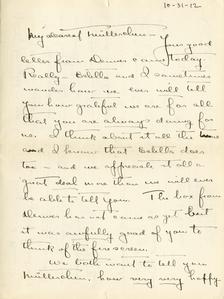 10-31-12
My dearest Mütterchen -
Your good
letter from Denver came today.
Really Bébélle and I sometimes
wonder how we ever will tell
you how grateful we are for all
that you are always doing for
us. I think about it all the time
and I know that Bébélle does
too - and we appreciate it all a
great deal more than we will ever
be able to tell you. The box from
Denver has not come as yet but
it was awfully good of you to
think of the fire screen.
We both want to tell you
Mütterchen, how very very happy